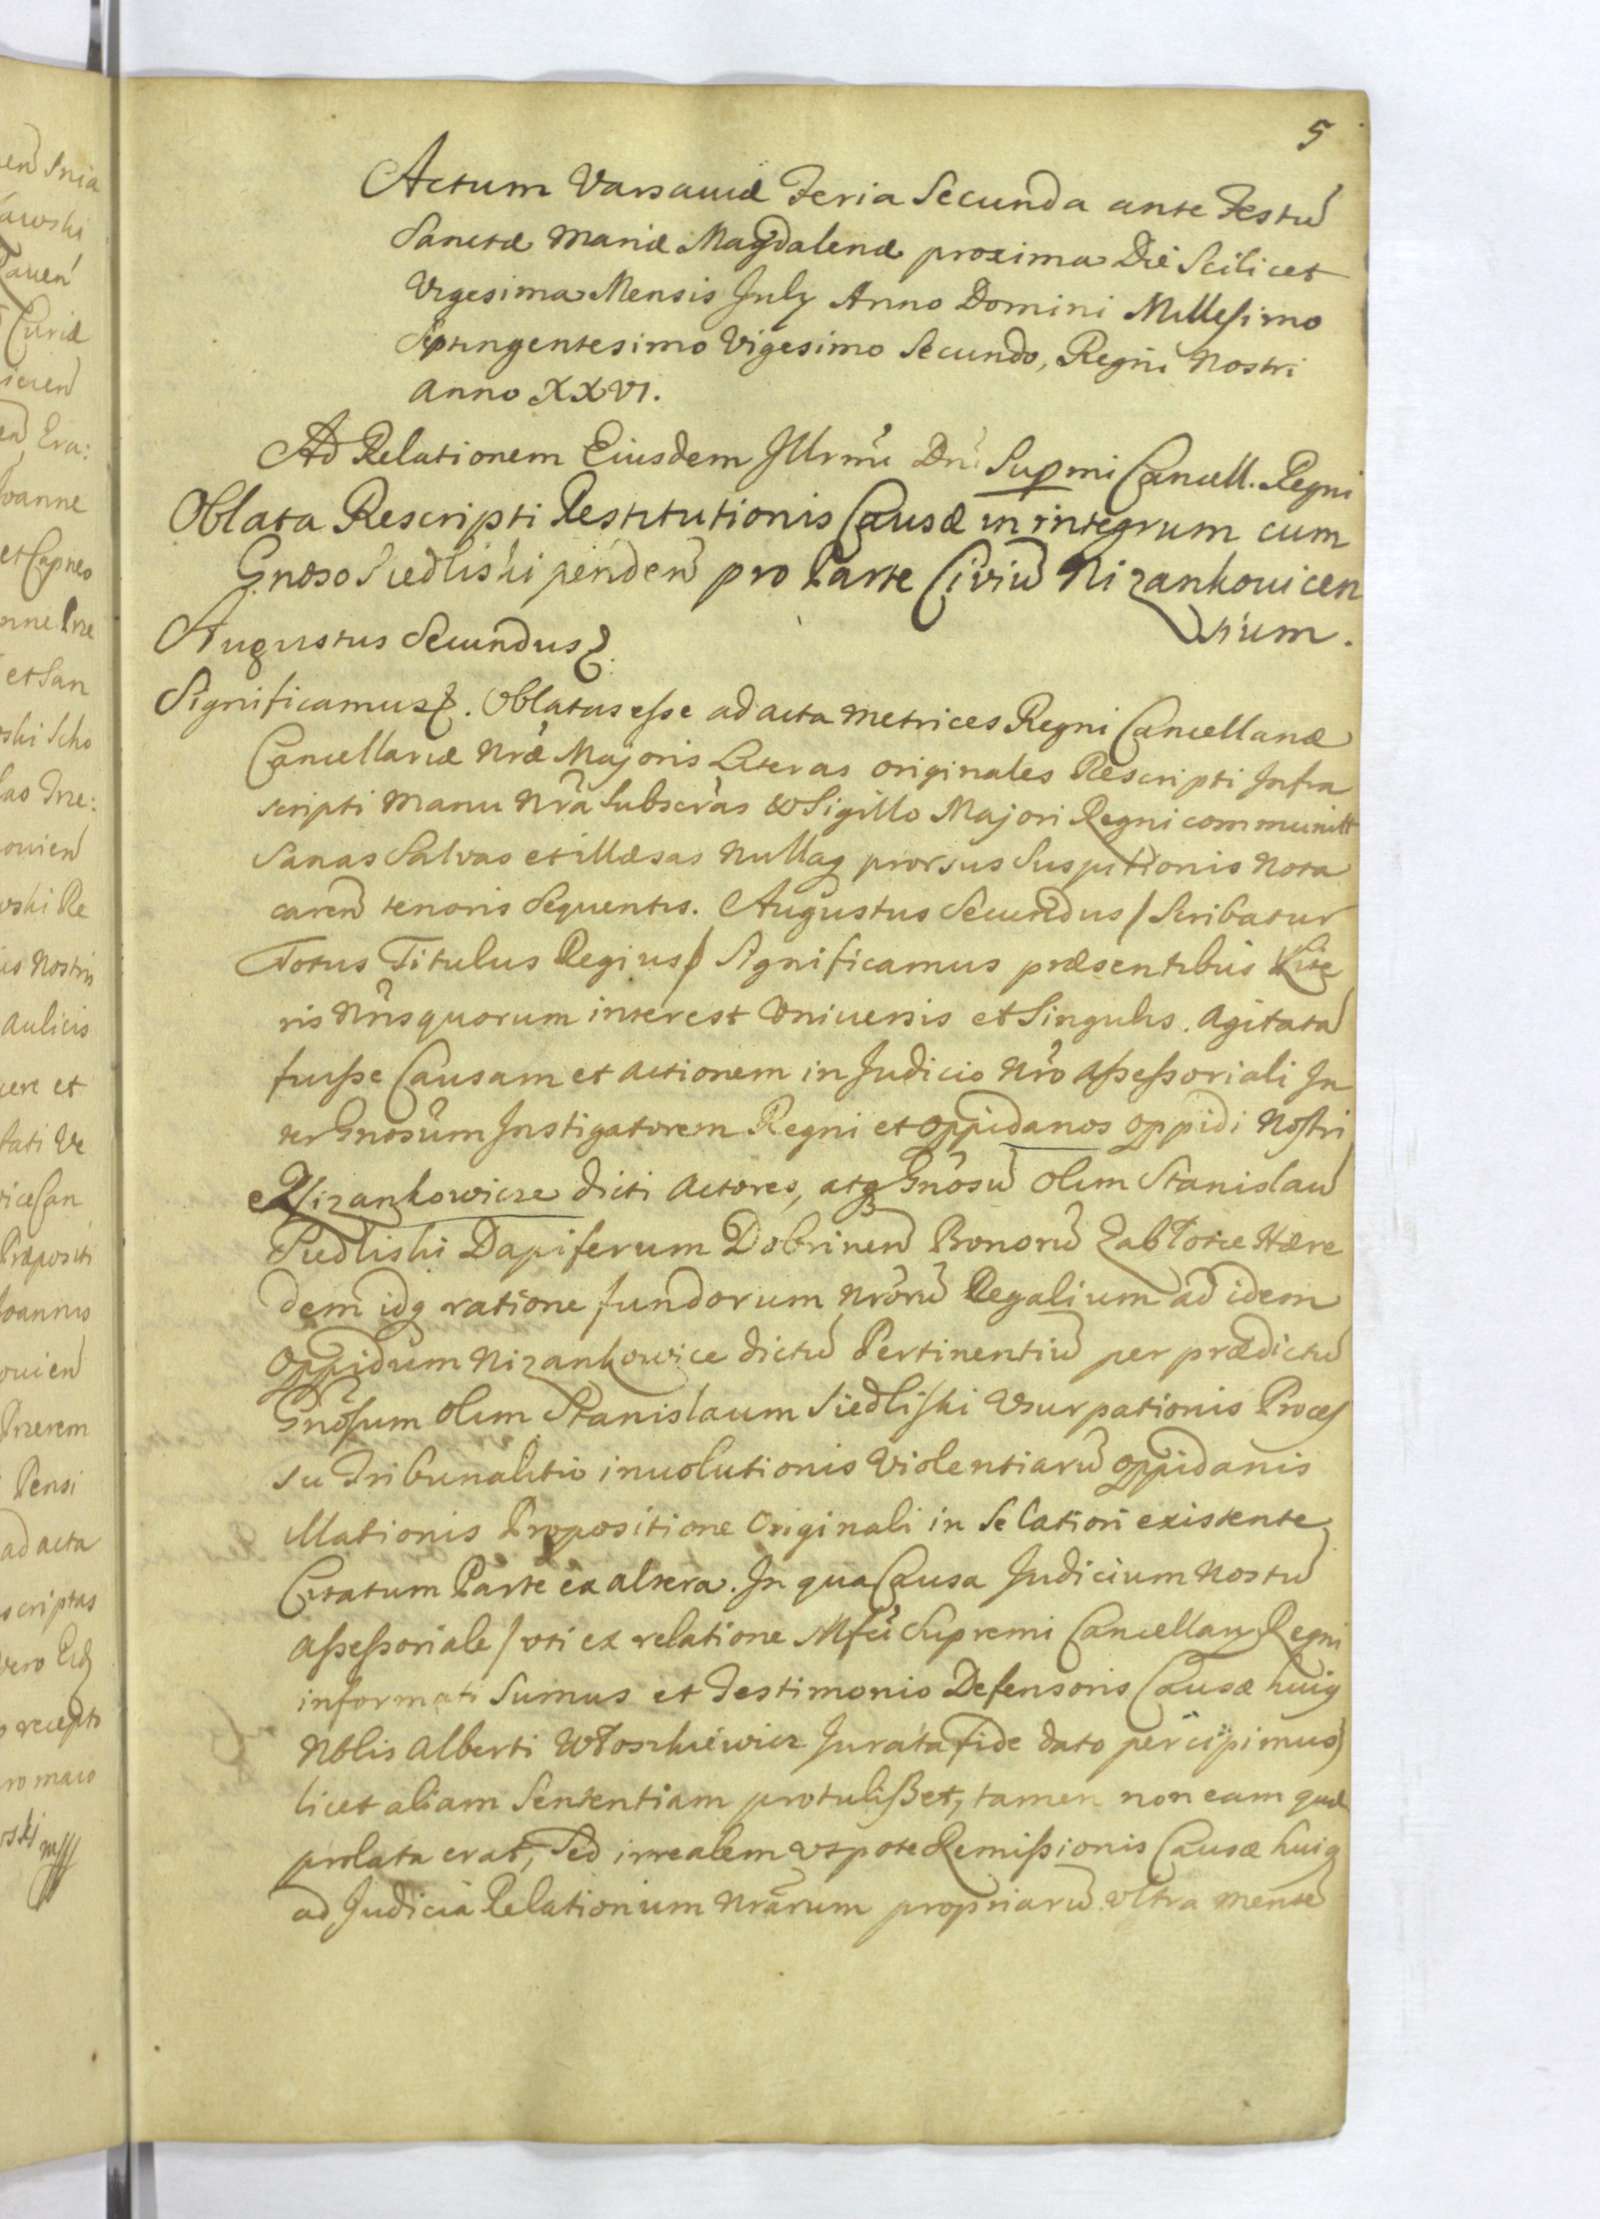 5
Actum Varsaviæ Feria Secunda ante Festū
Sanctæ Mariæ Magdalenæ proxima Die Scilicet
Vigesima Mensis July Anno Domini Millesimo
Septingentesimo Vigesimo Secundo, Regni Nostri
Anno XXVI.
Ad Relationem Eiusdem Illrmi Dni Supmi Cancell. Regni
Oblata Rescripti Restitutionis Causæ in integrum cum
Gnoso Siedliski penden pro Parte Civiū Nizankovicen
sium.
Augustus Secundus
Significamus. Oblatas esse ad acta Metrices Regni Cancellariæ
Cancellariæ Nræ Majoris Literas originales Rescripti Infra
scripti Manu Nrã Subscr̃as & Sigillo Majori Regni communitt
Sanas Salvas et illæsas Nullaq prorsus Suspitionis Nota
caren tenoris Sequentis. Augustus Secundus / Scribatur
Totus Titulus Regius / Significamus præsentibus Lite
ris Nris quorum interest Universis et Singulis. Agitatā
fuisse Causam et Actionem in Judicio Nrõ Assessoriali In
ter Gnosum Instigatorem Regni et oppidanos oppidi Nostri
Nizankowicze dicti Actores, atq Gnosū olim Stanislaū
Siedliski Dapiferum Dobrinen Bonorū Zabłotce Hære
dem idq ratione fundorum Nrorū Regalium ad idem
Oppidum Nizankowice dictū Pertinentiū per prædictū
Gnosum olim Stanislaum Siedliski Usurpationis Proces
su Tribunalitio involutionis Violentiarū oppidanis
illationis Propositione Originali in Se Latiori existente
Citatum Parte ex altera. In qua Causa Judicium Nostrū
Assessoriale / uti ex relatione Mfci Supremi Cancellarij Regni
informati Sumus et Testimonio Defensoris Causæ huiq
Nblis Alberti Włoszkiewicz Jurata fide dato percipimus)
licet aliam Sententiam protulisset, tamen non eam quæ
prolata erat, Sed irrealem utpote Remissionis Causæ huiq
ad Judicia Relationum Nrarum propriarū Ultra mentē